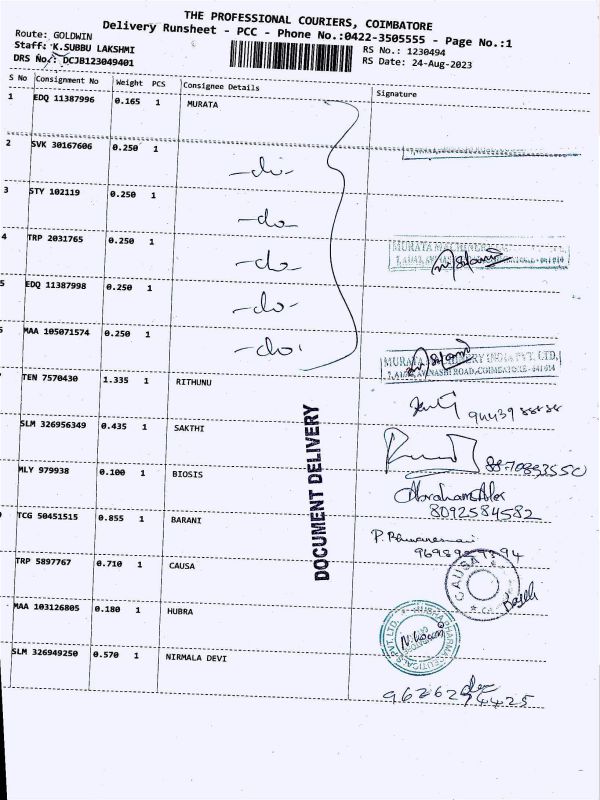 THE PROFESSIONAL COURIERS, COIMBATORE
Delivery Runsheet - PCC - Phone No.:0422-3505555 - Page No.:1
Route: GOLDWIN
Staff: K.SUBBU LAKSHMI RS No.: 1230494
DRS No.: DCJB123049401 RS Date: 24-Aug-2023
S No Consignment No Weight PCS Consignee Details Signature
1 EDQ 11387996 0.165 1 MURATA
2 SVK 30167606 0.250 1 -do-
3 STY 102119 0.250 1 -do-
4 TRP 2031765 0.250 1 -do-
MURATA MACHINERY
5 EDQ 11387998 0.250 1 -do-
MAA 105071574 0.250 1 -do-
MURATA MACHINERY INDIA PVT. LTD.
AVINASHI ROAD, COIMBATORE - 641 014
TEN 7570430 1.335 1 RITHUNU
94439 88888
SLM 326956349 0.435 1 SAKTHI
8870893550
MLY 979938 0.100 1 BIOSIS
Abraham Alex
8092584582
TCG 50451515 0.855 1 BARANI
P. Bhuvaneswari
TRP 5897767 0.710 1 CAUSA
CAUSA
MAA 103126805 0.180 1 HUBRA
SLM 326949250 0.570 1 NIRMALA DEVI
DOCUMENT DELIVERY